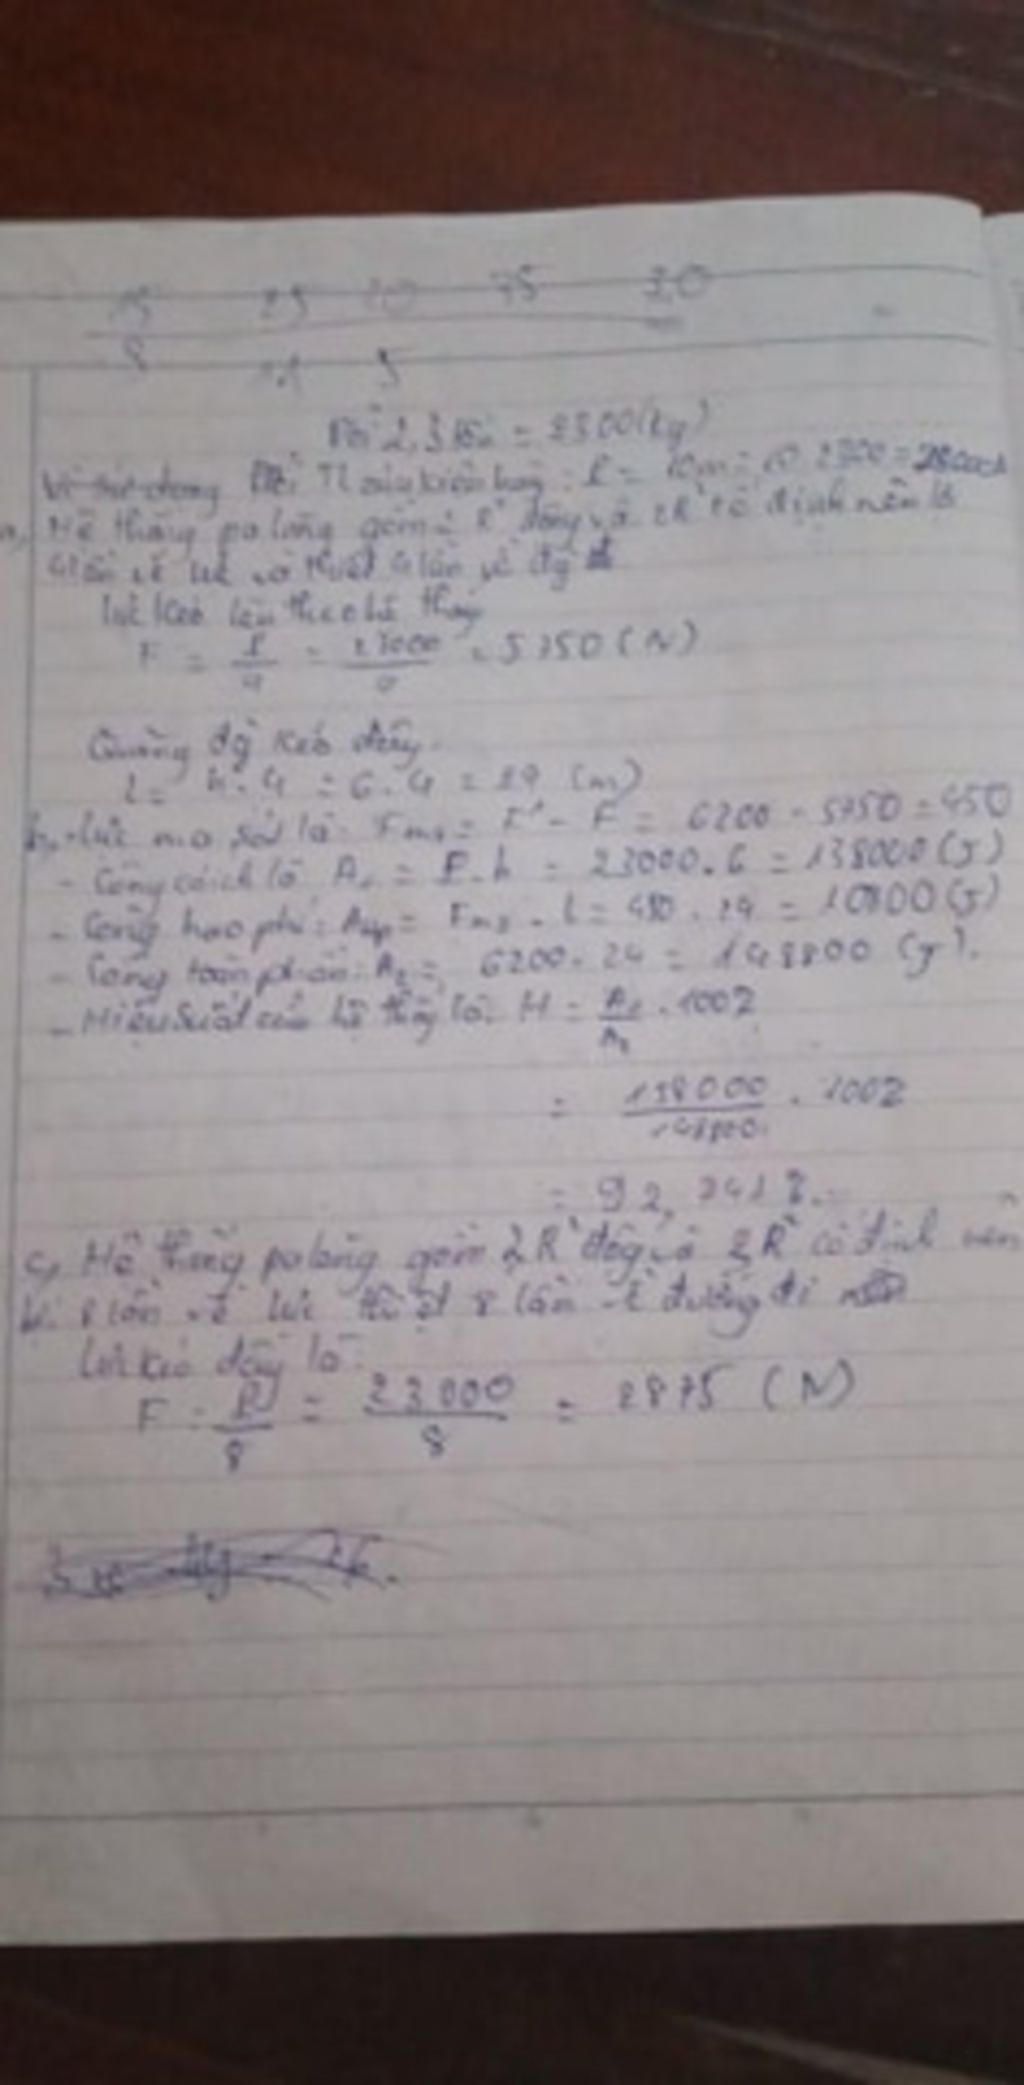 15 25 20 75 20
8 5
Đổi 2,3 tấn = 2300(kg)
Vì sử dụng kiện hàng: P = 10m = 10.2300 = 23000
a, Hệ thống pa lăng gồm 2 R² động và 2R² cố định nên lợi
4 lần về lực và thiệt 4 lần về đg
Lực kéo lên theo hệ thống
F = P/4 = 23000/4 = 5750 (N)
Quãng đg kéo dây
l = h.4 = 6.4 = 24 (m)
b, - Lực ma sát là: Fms = F' - F = 6200 - 5750 = 450
- Công có ích là A₁ = P.h = 23000.6 = 138000 (J)
- Công hao phí: Ahp = Fms . l = 450 . 24 = 10800 (J)
- Công toàn phần: A₂ = 6200.24 = 148800 (J).
- Hiệu suất của hệ thống là: H = A₁/A₂ .100%
= 138000/148800 . 100%
= 92,741%.
c, Hệ thống pa lăng gồm 2R² động và 2R² cố định nên
lợi 8 lần về lực thiệt 8 lần về đường đi
Lực kéo dây là:
F = P/8 = 23000/8 = 2875 (N)